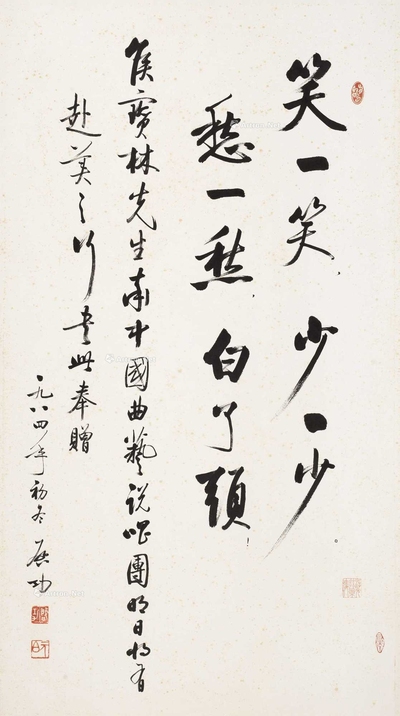 笑一笑 少一少
愁一愁 白了頭
侯寶林先生率中國曲藝说唱團明日将有
赴美之行 書此奉贈
一九八四年初冬 启功